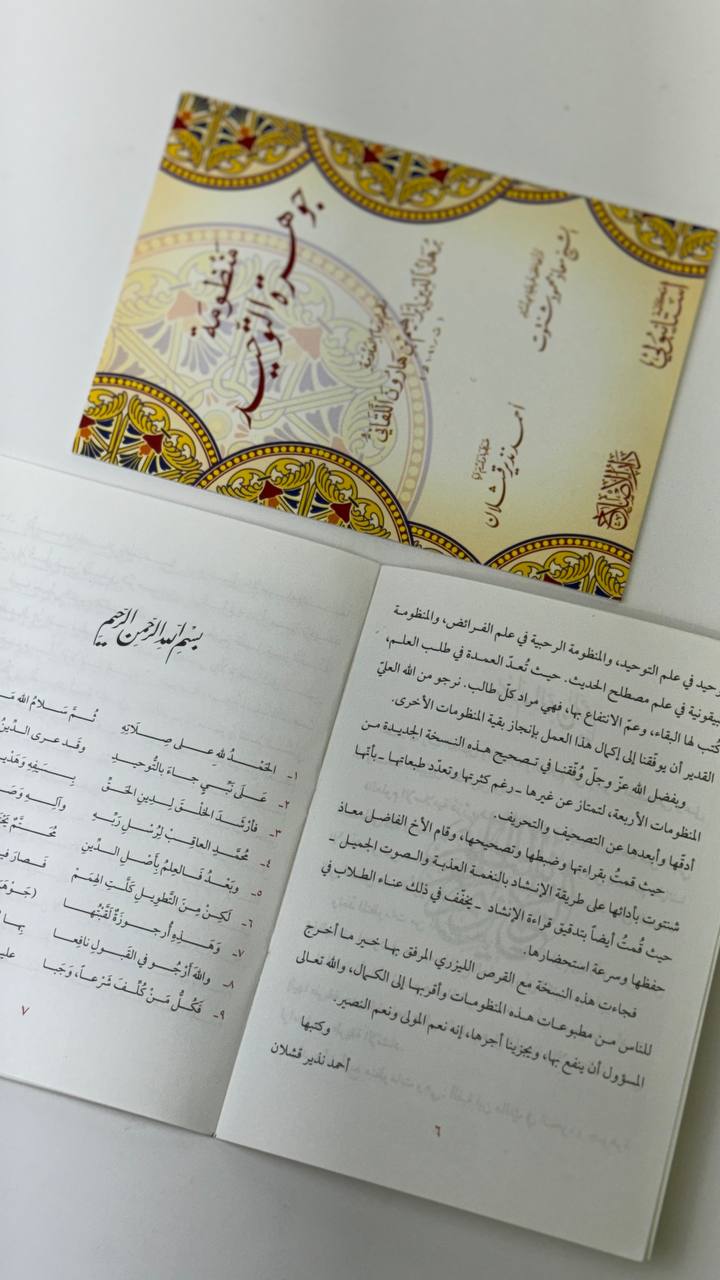 منظومة
جوهرة التوحيد
برهان الدين إبراهيم بن هارون اللقاني
أحمد نذير قشلان
الشيخ معاذ محمود شنتوت
دار الإصلاح
وحيد في علم التوحيد، والمنظومة الرحبية في علم الفرائض، والمنظومة
بيقونية في علم مصطلح الحديث. حيث تُعدّ العمدة في طلب العلم،
كُتب لها البقاء، وعمّ الانتفاع بها، فهي مراد كلّ طالب. نرجو من الله العليّ
القدير أن يوفّقنا إلى إكمال هذا العمل بإنجاز بقية المنظومات الأخرى.
وبفضل الله عزّ وجلّ وُفّقنا في تصحيح هذه النسخة الجديدة من
المنظومات الأربعة، لتمتاز عن غيرها ـ رغم كثرتها وتعدّد طبعاتها ـ بأنها
أدقّها وأبعدها عن التصحيف والتحريف.
حيث قمتُ بقراءتها وضبطها وتصحيحها، وقام الأخ الفاضل معاذ
شنتوت بأدائها على طريقة الإنشاد بالنغمة العذبة والصوت الجميل ـ
حيث قُمتُ أيضاً بتدقيق قراءة الإنشاد ـ يخفّف في ذلك عناء الطلاب في
حفظها وسرعة استحضارها.
فجاءت هذه النسخة مع القرص الليزري المرفق بها خير ما أخرج
للناس من مطبوعات هذه المنظومات وأقربها إلى الكمال، والله تعالى
المسؤول أن ينفع بها، ويجزينا أجرها، إنه نعم المولى ونعم النصير.
وكتبها
أحمد نذير قشلان
٦
بسم الله الرحمن الرحيم
١ـ الحَمْدُ للهِ عَلى صِلَاتِهِ ثُمَّ سَلَامُ الله مَـ
٢ـ عَلَى نَبِيٍّ جاءَ بالتَّوحيدِ وقَد عرى الدِّينُ
٣ـ فأرْشَدَ الخَلْقَ لِدِينِ الحَقِّ بِسَيفِهِ وَهَدْيِـ
٤ـ مُحَمَّدِ العاقِبْ لِرُسْلِ رَبِّهِ وآلِهِ وَصَـ
٥ـ وبَعْدُ فَالعِلمُ بِأَصْلِ الدِّينِ مُحَتَّمٌ يَحْـ
٦ـ لَكِنْ مِنَ التَّطْوِيلِ كَلَّتِ الهِمَمْ فَصَارَ فيـ
٧ـ وَهَذِهِ أُرجوزَةٌ لَقَّبْتُها (جَوْهَرَ
٨ـ واللهَ أَرْجُو في القَبولِ نافِعا بِها
٩ـ فَكُلُّ مَنْ كُلِّفَ شَرْعاً، وَجَبا عليـ
٧